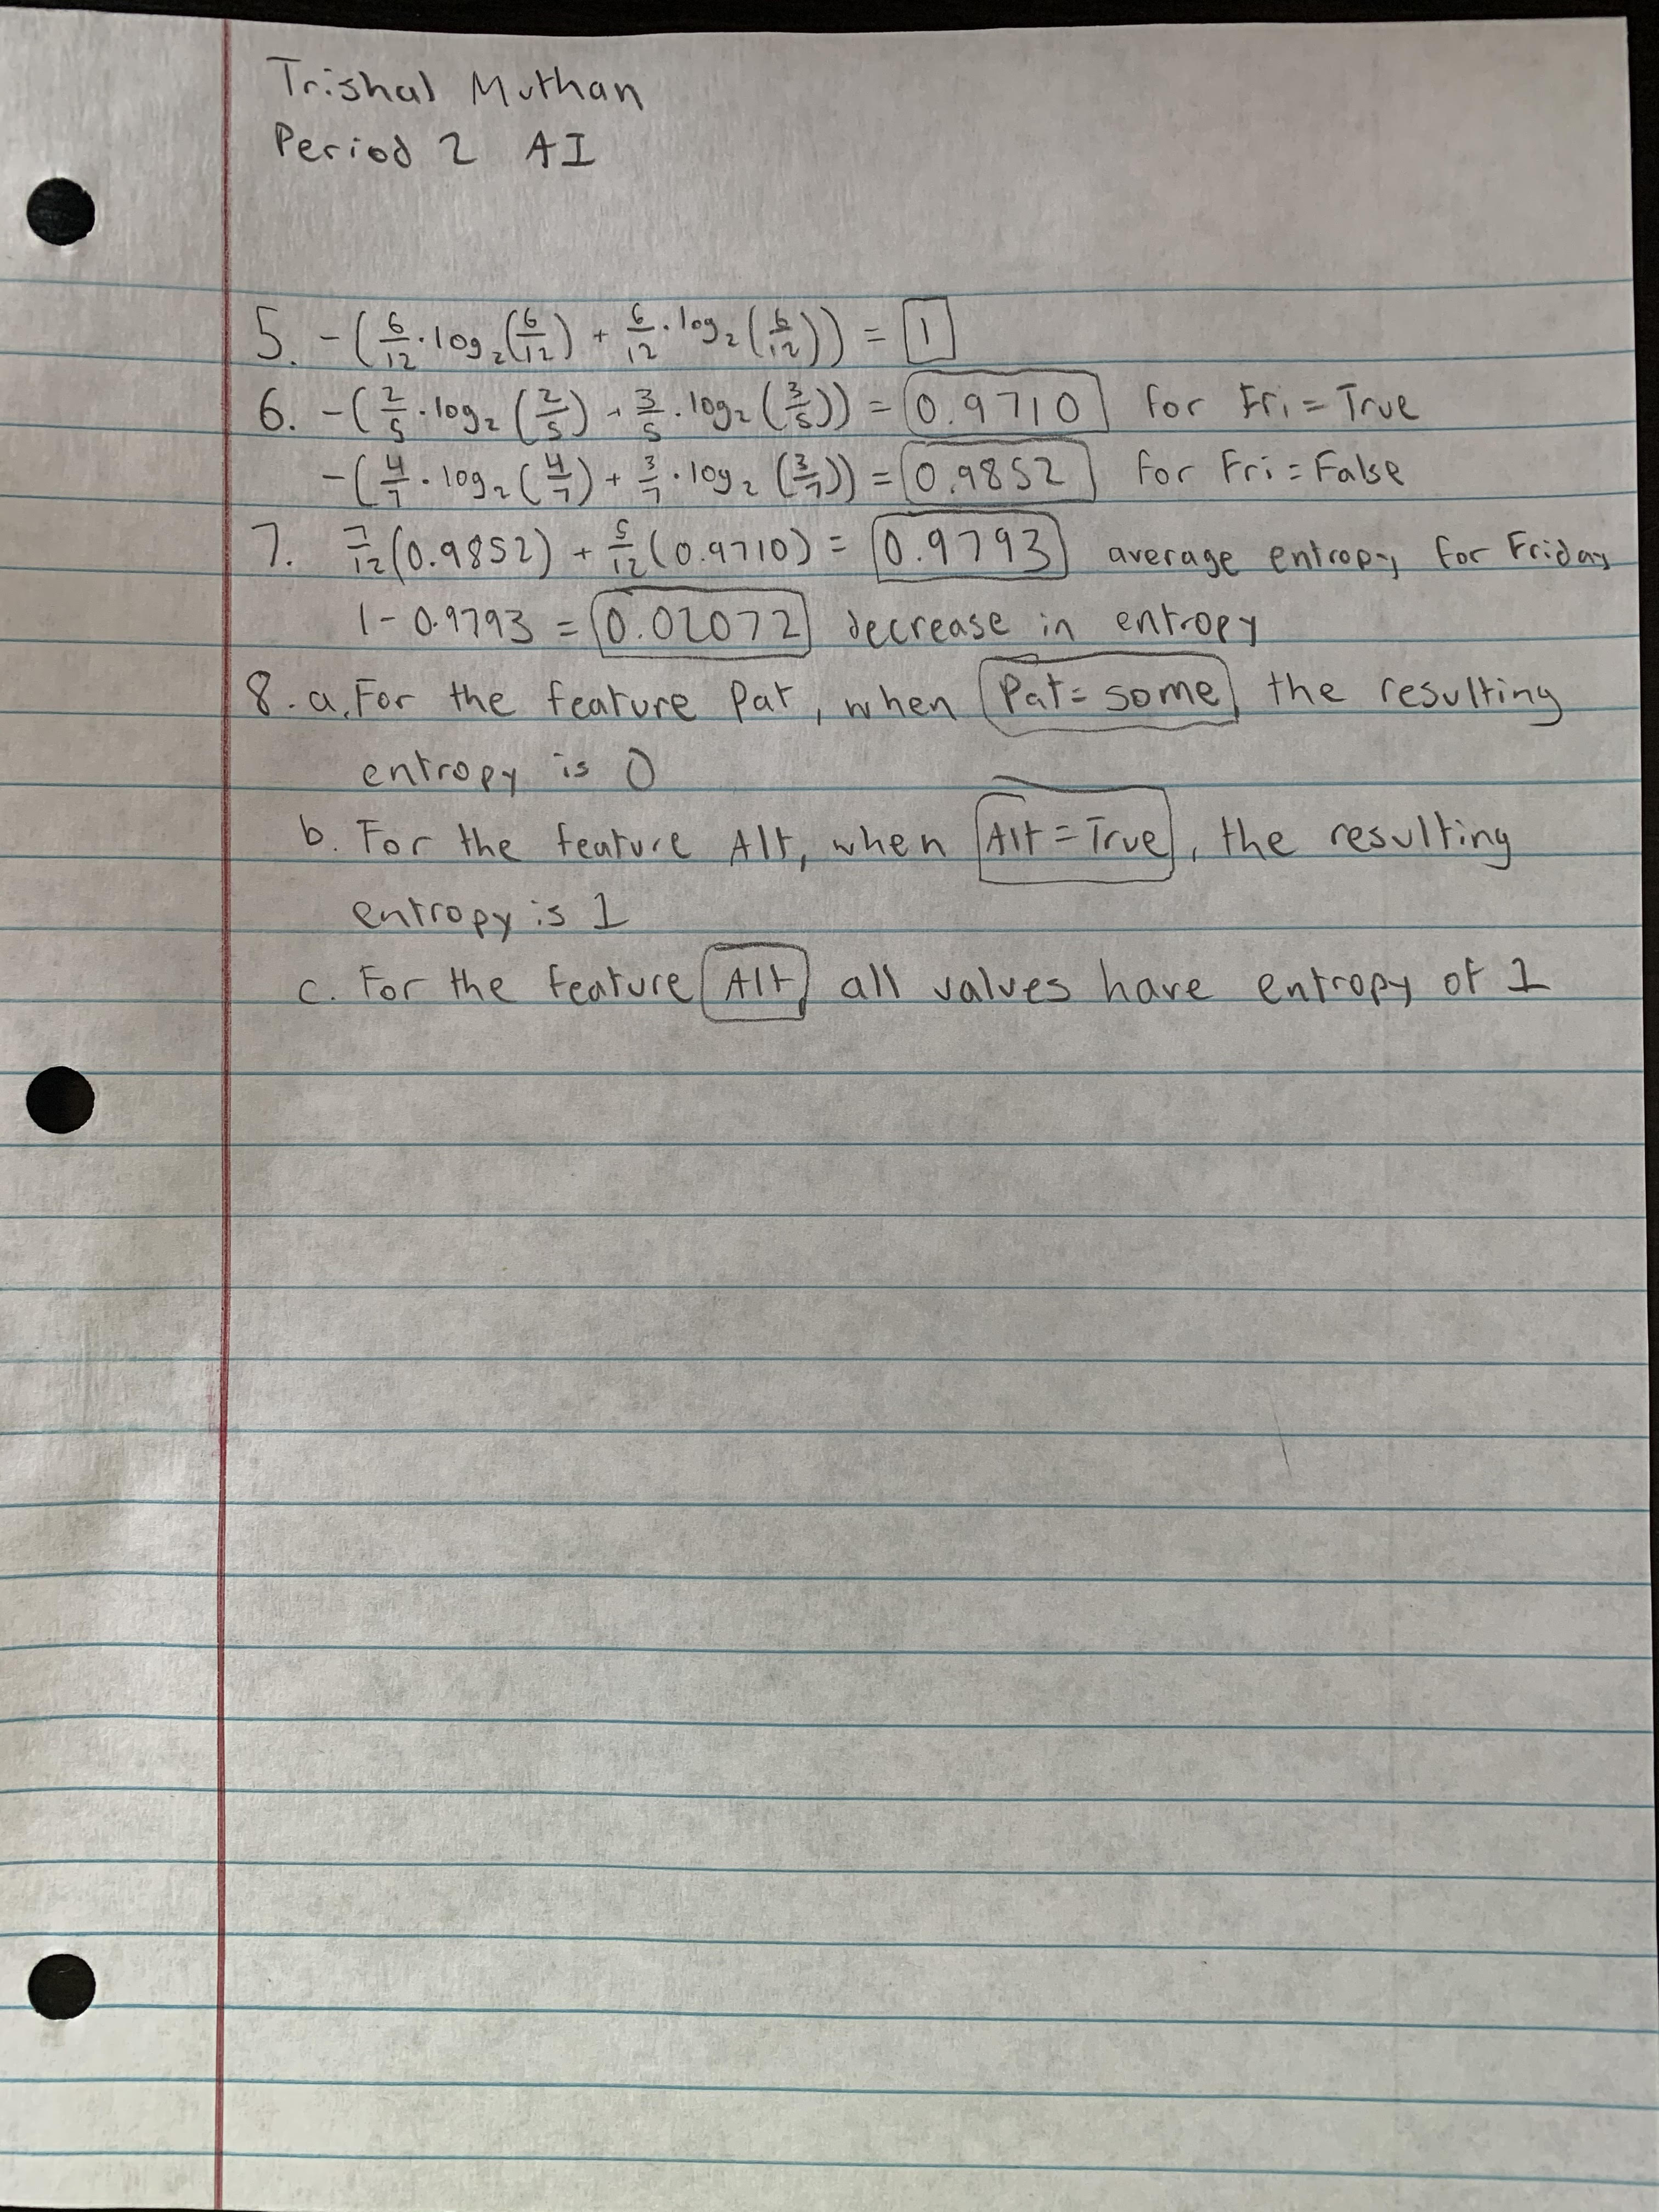 Trishal Muthan
Period 2 AI
5. -(6/12 · log₂(6/12) + 6/12 · log₂(6/12)) = 1
6. -(2/5 · log₂(2/5) + 3/5 · log₂(3/5)) = 0.9710 for Fri = True
-(4/7 · log₂(4/7) + 3/7 · log₂(3/7)) = 0.9852 for Fri = False
7. 7/12(0.9852) + 5/12(0.9710) = 0.9793 average entropy for Friday
1 - 0.9793 = 0.02072 decrease in entropy
8. a. For the feature Pat, when Pat = some, the resulting
entropy is 0
b. For the feature Alt, when Alt = True, the resulting
entropy is 1
c. For the feature Alt, all values have entropy of 1